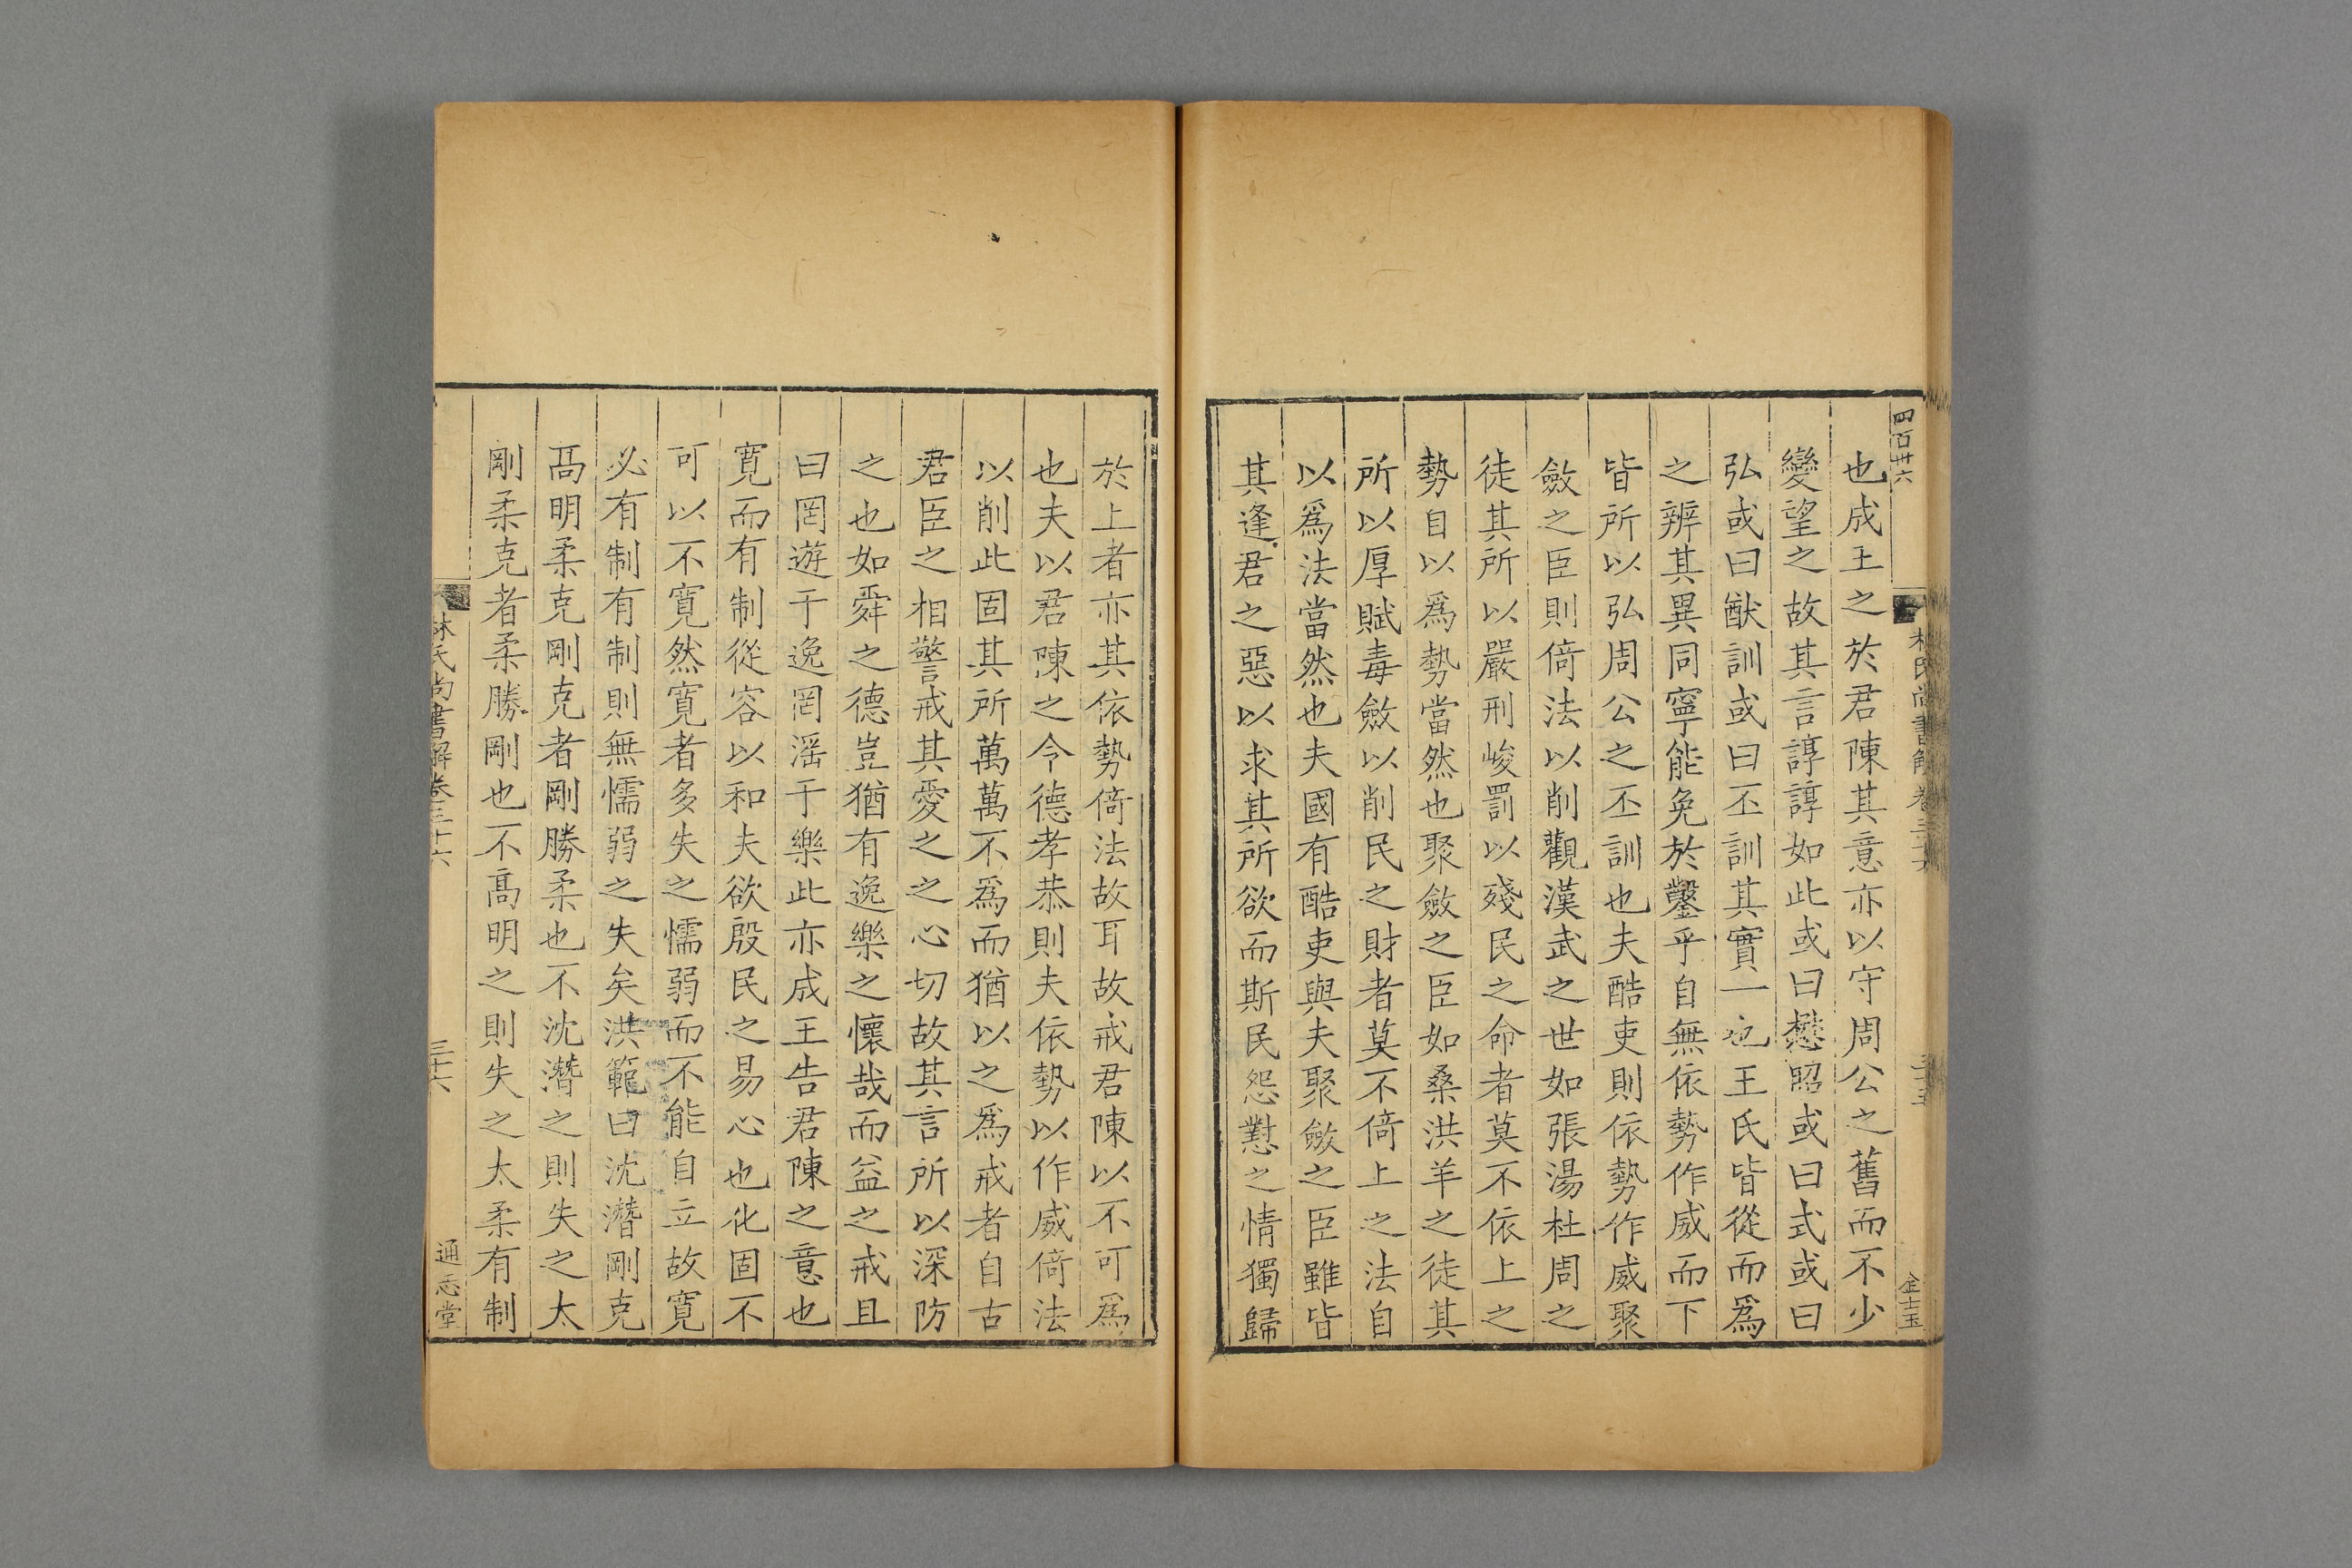 四百廿六
林氏尚書解卷三十六
三十五
金士玉
也成王之於君陳其意亦以守周公之舊而不少
變望之故其言諄諄如此或曰懋昭或曰式或曰
弘或曰猷訓或曰丕訓其實一也王氏皆從而爲
之辨其異同寧能免於鑿乎自無依勢作威而下
皆所以弘周公之丕訓也夫酷吏則依勢作威聚
斂之臣則倚法以削觀漢武之世如張湯杜周之
徒其所以嚴刑峻罰以殘民之命者莫不依上之
勢自以爲勢當然也聚斂之臣如桑洪羊之徒其
所以厚賦毒斂以削民之財者莫不倚上之法自
以爲法當然也夫國有酷吏與夫聚斂之臣雖皆
其逢君之惡以求其所欲而斯民怨懟之情獨歸
於上者亦其依勢倚法故耳故戒君陳以不可爲
也夫以君陳之令德孝恭則夫依勢以作威倚法
以削此固其所萬萬不爲而猶以之爲戒者自古
君臣之相警戒其愛之之心切故其言所以深防
之也如舜之德豈猶有逸樂之懷哉而益之戒且
曰罔遊于逸罔滛于樂此亦成王告君陳之意也
寬而有制從容以和夫欲殷民之易心也化固不
可以不寬然寬者多失之懦弱而不能自立故寬
必有制有制則無懦弱之失矣洪範曰沈潛剛克
高明柔克剛克者剛勝柔也不沈潛之則失之太
剛柔克者柔勝剛也不高明之則失之太柔有制
林氏尚書解卷三十六
三十六
通志堂